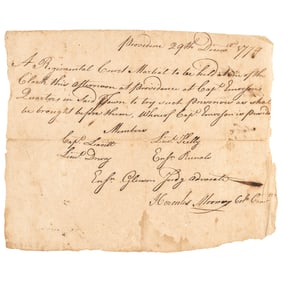 Providence 29th Decmr 1778
A Regimental Court Martial to be held of the
Clock this afternoon at Providence at Capt Emersons
Quarters in said Town to try such Prisoners as shall
be brought before them, Whereof Capt Emerson is
Members
Capt Lieut Kelly
Lieut Drury Ensn Runals
Ensn Judg Advocate
Hercules Mooney